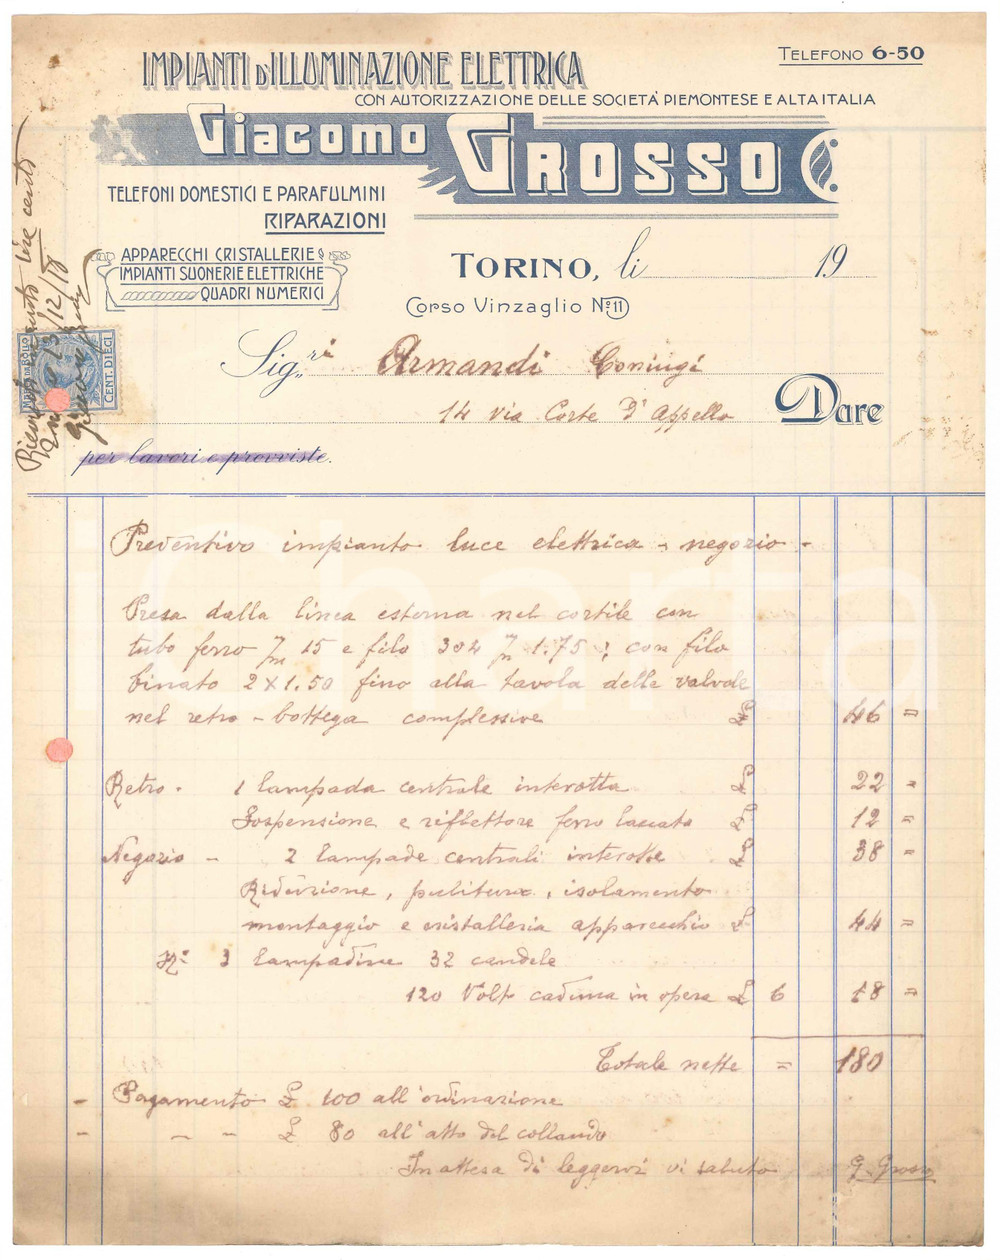 TELEFONO 6-50
IMPIANTI D'ILLUMINAZIONE ELETTRICA
CON AUTORIZZAZIONE DELLE SOCIETÀ PIEMONTESE E ALTA ITALIA
Giacomo GROSSO
TELEFONI DOMESTICI E PARAFULMINI
RIPARAZIONI
APPARECCHI CRISTALLERIE
IMPIANTI SUONERIE ELETTRICHE
QUADRI NUMERICI
TORINO, li 19
Corso Vinzaglio No 11
Sig.ri Armandi Coniugi
14 Via Corte D'Appello
Dare
per lavori e provviste.
MARCA DA BOLLO
CENT. DIECI
lire cento
13/12/18
Preventivo impianto luce elettrica - negozio -
Presa dalla linea esterna nel cortile con
tubo ferro 7/m 15 e filo 302 7/n 1.75 ; con filo
binato 2 x 1.50 fino alla tavola delle valvole
nel retro - bottega complessive £ 46 =
Retro - 1 lampada centrale interotta £ 22 =
Sospensione e riflettore ferro laccato £ 12 =
Negozio - 2 lampade centrali interotte £ 38 =
Riduzione, pulitura, isolamento
montaggio e cristalleria apparecchio £ 44 =
N: 3 lampadine 32 candele
120 Volt caduna in opera £ 6 18 =
Totale nette = 180
- Pagamento £ 100 all'ordinazione
- - - £ 80 all'atto del collaudo
In attesa di leggervi vi saluto G. Grosso